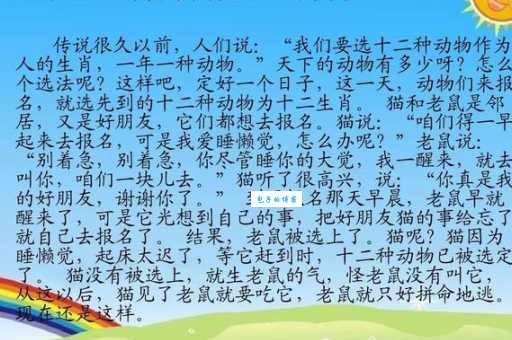 传说很久以前，人们说：“我们要选十二种动物作为
人的生肖，一年一种动物。”天下的动物有多少呀？怎么
个选法呢？这样吧，定好一个日子，这一天，动物们来报
名，就选先到的十二种动物为十二生肖。 猫和老鼠是邻
居，又是好朋友，它们都想去报名。猫说：“咱们得一早
起来去报名，可是我爱睡懒觉，怎么办呢？”老鼠说：
“别着急，别着急，你尽管睡你的大觉，我一醒来，就去
叫你，咱们一块儿去。”猫听了很高兴，说：“你真是我
的好朋友，谢谢你了。” 名那天早晨，老鼠早就
醒来了，可是它光想到自己的事，把好朋友猫的事给忘了
就自己去报名了。 结果，老鼠被选上了。猫呢？猫因为
睡懒觉，起床太迟了，等它赶到时，十二种动物已被选定
了。 猫没有被选上，就生老鼠的气，怪老鼠没有叫它，
从这以后，猫见了老鼠就要吃它，老鼠就只好拼命地逃。
现在还是这样。